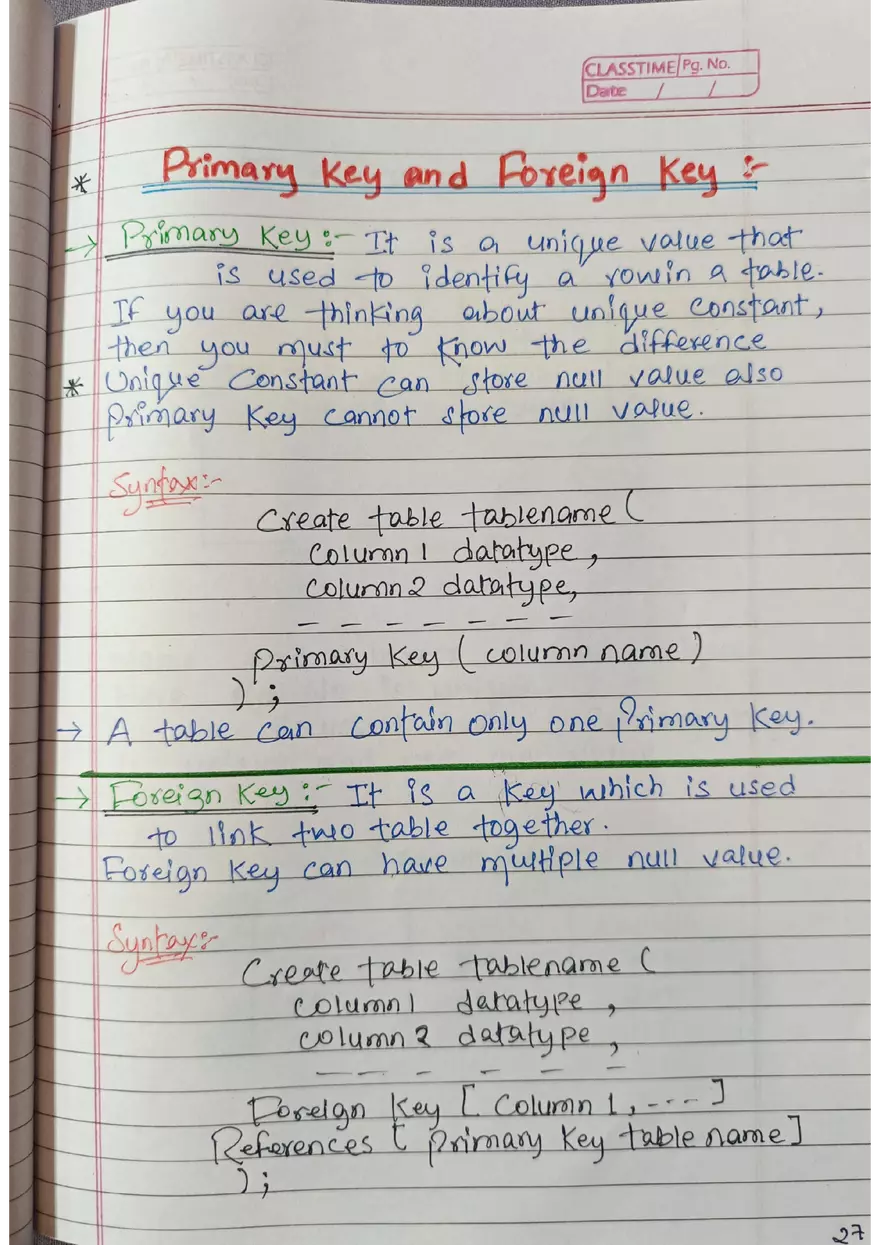 CLASSTIME Pg. No.
Date / /
* Primary Key and Foreign Key :-
→ Primary Key :- It is a unique value that
is used to identify a row in a table.
If you are thinking about unique constant,
then you must to know the difference
* Unique Constant can store null value also
Primary Key cannot store null value.
Syntax :-
Create table tablename (
column 1 datatype,
column 2 datatype,
- - - - - - -
primary key ( column name )
) ;
→ A table can contain only one Primary Key.
→ Foreign Key :- It is a key which is used
to link two table together.
Foreign Key can have multiple null value.
Syntax :-
Create table tablename (
column 1 datatype ,
column 2 datatype ,
- - - - - -
Foreign Key [ column 1 , ---- ]
References [ primary key table name ]
) ;
27